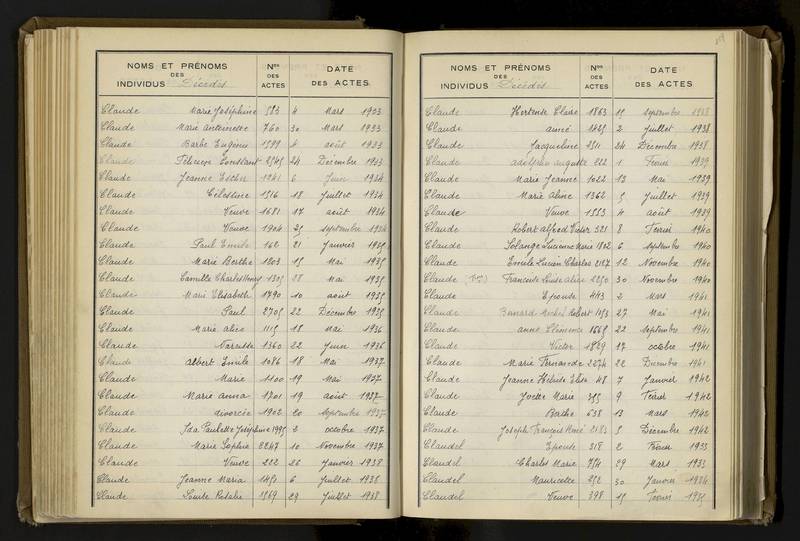 NOMS ET PRÉNOMS
DES
INDIVIDUS Décédés
Nos
DES
ACTES
DATE
DES ACTES
Claude Marie Joséphine 583 4 Mars 1933
Claude Marie Antoinette 760 30 Mars 1933
Claude Barbe Eugénie 1599 4 août 1933
Claude Constant 24 Décembre 1933
Claude Jeanne Esther 1241 6 Juin 1934
Claude Célestine 1516 18 Juillet 1934
Claude Veuve 1681 17 août 1934
Claude Veuve 1904 25 septembre 1934
Claude Paul Emile 162 21 Janvier 1935
Claude Marie Berthe 1203 15 Mai 1935
Claude Camille Charles Henry 1305 28 Mai 1935
Claude Marie Elisabeth 1790 10 août 1935
Claude Paul 2705 22 Décembre 1935
Claude Marie alice 1115 18 Mai 1936
Claude Narcisse 1360 22 Juin 1936
Claude albert Emile 1086 18 Mai 1937
Claude Marie 1100 19 Mai 1937
Claude Marie anna 1701 19 août 1937
Claude divorcée 1902 20 septembre 1937
Claude Ida Paulette Joséphine 1995 2 octobre 1937
Claude Marie Sophie 2247 10 Novembre 1937
Claude Veuve 222 26 Janvier 1938
Claude Jeanne Maria 1453 6 Juillet 1938
Claude Louise Rosalie 1569 29 Juillet 1938
NOMS ET PRÉNOMS
DES
INDIVIDUS Décédés
Nos
DES
ACTES
DATE
DES ACTES
Claude Hortense Claire 1863 15 septembre 1938
Claude aimé 1425 2 Juillet 1938
Claude Jacqueline 2511 24 Décembre 1938
Claude auguste 222 1 Février 1939
Claude Marie Jeanne 1022 13 Mai 1939
Claude Marie Aline 1362 5 Juillet 1939
Claude Veuve 1553 4 août 1939
Claude Robert Alfred Victor 321 8 Février 1940
Claude Solange Lucienne Marie 1802 6 septembre 1940
Claude Emile Lucien Charles 2187 12 Novembre 1940
Claude Françoise Louise Alice 2250 30 Novembre 1940
Claude Epouse 443 2 Mars 1941
Claude Robert 1053 27 Mai 1941
Claude anne Clémence 1668 22 septembre 1941
Claude Victor 1829 17 octobre 1941
Claude Marie Fernande 2274 22 Décembre 1941
Claude Jeanne Elise 48 7 Janvier 1942
Claude Yvette Marie 315 9 Février 1942
Claude Berthe 638 13 Mars 1942
Claude Joseph François René 2183 5 Décembre 1942
Claudel Epouse 318 2 Février 1933
Claudel Charles Marie 754 29 Mars 1933
Claudel Mauricette 252 30 Janvier 1934
Claudel Veuve 398 15 Février 1935